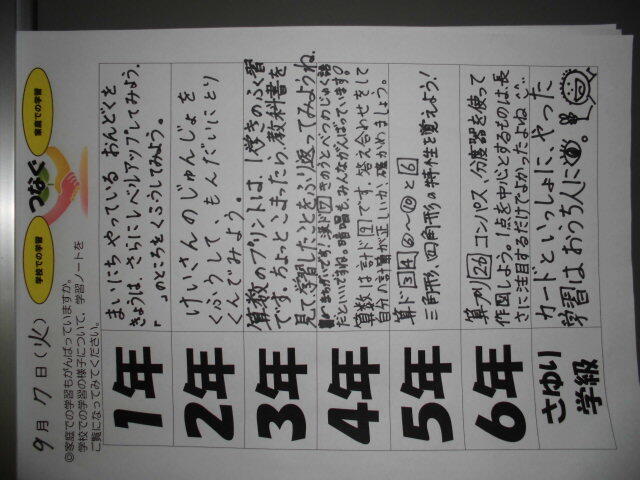 9月7日(火)
学校での学習
つなぐ
家庭での学習
◎家庭での学習もがんばっていますか。
学校での学習の様子について、学習ノートを
ご覧になってみてください。
1年
まいにちやっている おんどくを
きょうは、さらにレベルアップしてみよう。
「 」のところをくふうしてみよう。
2年
けいさんのじゅんじょを
くふうして、もんだいにとり
くんでみよう。
3年
算数のプリントは、1学きのふく習
です。ちょっとこまったら、教科書を
見て、学習したことをふり返ってみようね。
4年
だといいですね。暗唱も、みんながんばっています。
算数は計ド9です。答え合わせをして
自分の計算が正しいか、確かめましょう。
5年
算ド34⑥〜⑩と6
三角形、四角形の特性を覚えよう!
6年
算プリ26コンパス、分度器を使って
作図しよう。1点を中心とするものは、長
さに注目するだけでよかったよね
さゆり
学級
カードといっしょに、やった
学習は、おうち人に